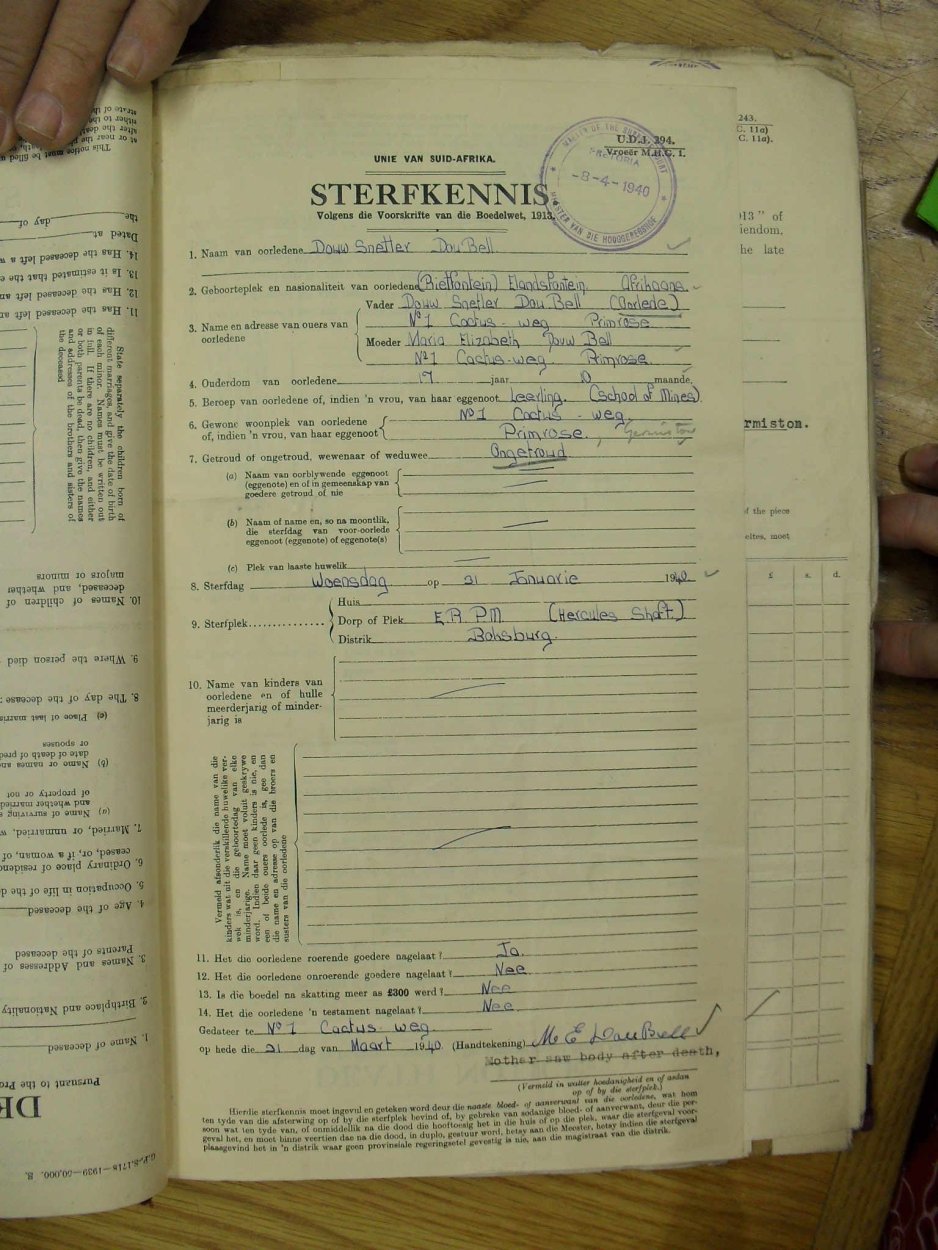 U.D.J. 294.
Vroeër M.H.G. 1.
PRETORIA
-8-4-1940
UNIE VAN SUID-AFRIKA.
STERFKENNIS.
Volgens die Voorskrifte van die Boedelwet, 1913.
1. Naam van oorledene Douw Sneller Dou Bell
2. Geboorteplek en nasionaliteit van oorledene (Rietfontein) Elandsfontein. Afrikaans
Vader Douw Sneller Dou Bell (Oorlede)
Nº 1 Cactus - weg Primrose
3. Name en adresse van ouers van oorledene
Moeder Maria Elizabeth Douw Bell
Nº 1 Cactus-weg, Primrose
4. Ouderdom van oorledene 19 jaar 10 maande,
5. Beroep van oorledene of, indien 'n vrou, van haar eggenoot Leerling. (School of Mines)
6. Gewone woonplek van oorledene of, indien 'n vrou, van haar eggenoot Nº 1 Cactus - weg.
Primrose, Germiston
7. Getroud of ongetroud, wewenaar of weduwee Ongetroud
(a) Naam van oorblywende eggenoot
(eggenote) en of in gemeenskap van
goedere getroud of nie
(b) Naam of name en, so na moontlik,
die sterfdag van voor-oorlede
eggenoot (eggenote) of eggenote(s)
(c) Plek van laaste huwelik
8. Sterfdag Woensdag op 31 Januarie 1940
9. Sterfplek
Huis
Dorp of Plek E.R.P.M (Hercules Shaft)
Distrik Boksburg.
10. Name van kinders van
oorledene en of hulle
meerderjarig of minder-
jarig is
Vermeld afsonderlik die name van die
kinders wat uit die verskillende huwelike ver-
wek is, en die geboortedag van elke
minderjarige. Name moet voluit geskrywe
word. Indien daar geen kinders is nie, en
een of beide ouers oorlede is, gee dan
die name en adresse op van die broers en
susters van die oorledene
11. Het die oorledene roerende goedere nagelaat? Ja.
12. Het die oorledene onroerende goedere nagelaat? Nee
13. Is die boedel na skatting meer as £300 werd? Nee
14. Het die oorledene 'n testament nagelaat? Nee
Gedateer te Nº 1 Cactus - weg.
op hede die 21 dag van Maart 1940. (Handtekening) M E Dou Bell
Mother saw body after death,
(Vermeld in watter hoedanigheid en of aldan
op of by die sterfplek.)
Hierdie sterfkennis moet ingevul en geteken word deur die naaste bloed- of aanverwant van die oorledene, wat hom
ten tyde van die afsterwing op of by die sterfplek bevind of, by gebreke van sodanige bloed- of aanverwant, deur die per-
soon wat ten tyde van, of onmiddellik na die dood die hooftoesig het in die huis of op die plek, waar die sterfgeval voor-
geval het, en moet binne veertien dae na die dood, in duplo, gestuur word, hetsy aan die Meester, hetsy indien die sterfgeval
plaasgevind het in 'n distrik waar geen provinsiale regeringsetel gevestig is nie, aan die magistraat van die distrik.
243.
C. 11a)
C. 11a).
13" of
iendom.
he late
rmiston.
f the piece
eltes, moet
£ s. d.
1. Name of deceased
2. Birthplace and Nationality
3. Names and Addresses of
Parents of the deceased
4. Age of the deceased
5. Occupation in life of the d
6. Ordinary place of residenc
ceased, or, if a woman, of
7. Married, or unmarried, w
(a) Name of surviving s
and whether married
of property or not
(b) Name or names an
date of death of pred
or spouses
(c) Place of last marria
8. The day of the decease
9. Where the person died
10. Names of children of
deceased, and whether
majors or minors
State separately the children born of
different marriages, and give the date of birth
of each minor. Names must be written out
in full. If there are no children, and either
or both parents be dead, then give the names
and addresses of the brothers and sisters of
the deceased
11. Has the deceased left an
12. Has the deceased left an
13. Is it estimated that the e
14. Has the deceased left a w
Dated at
the day of
This notice must be filled u
G.P.-S.1718-1939-50,000. S.